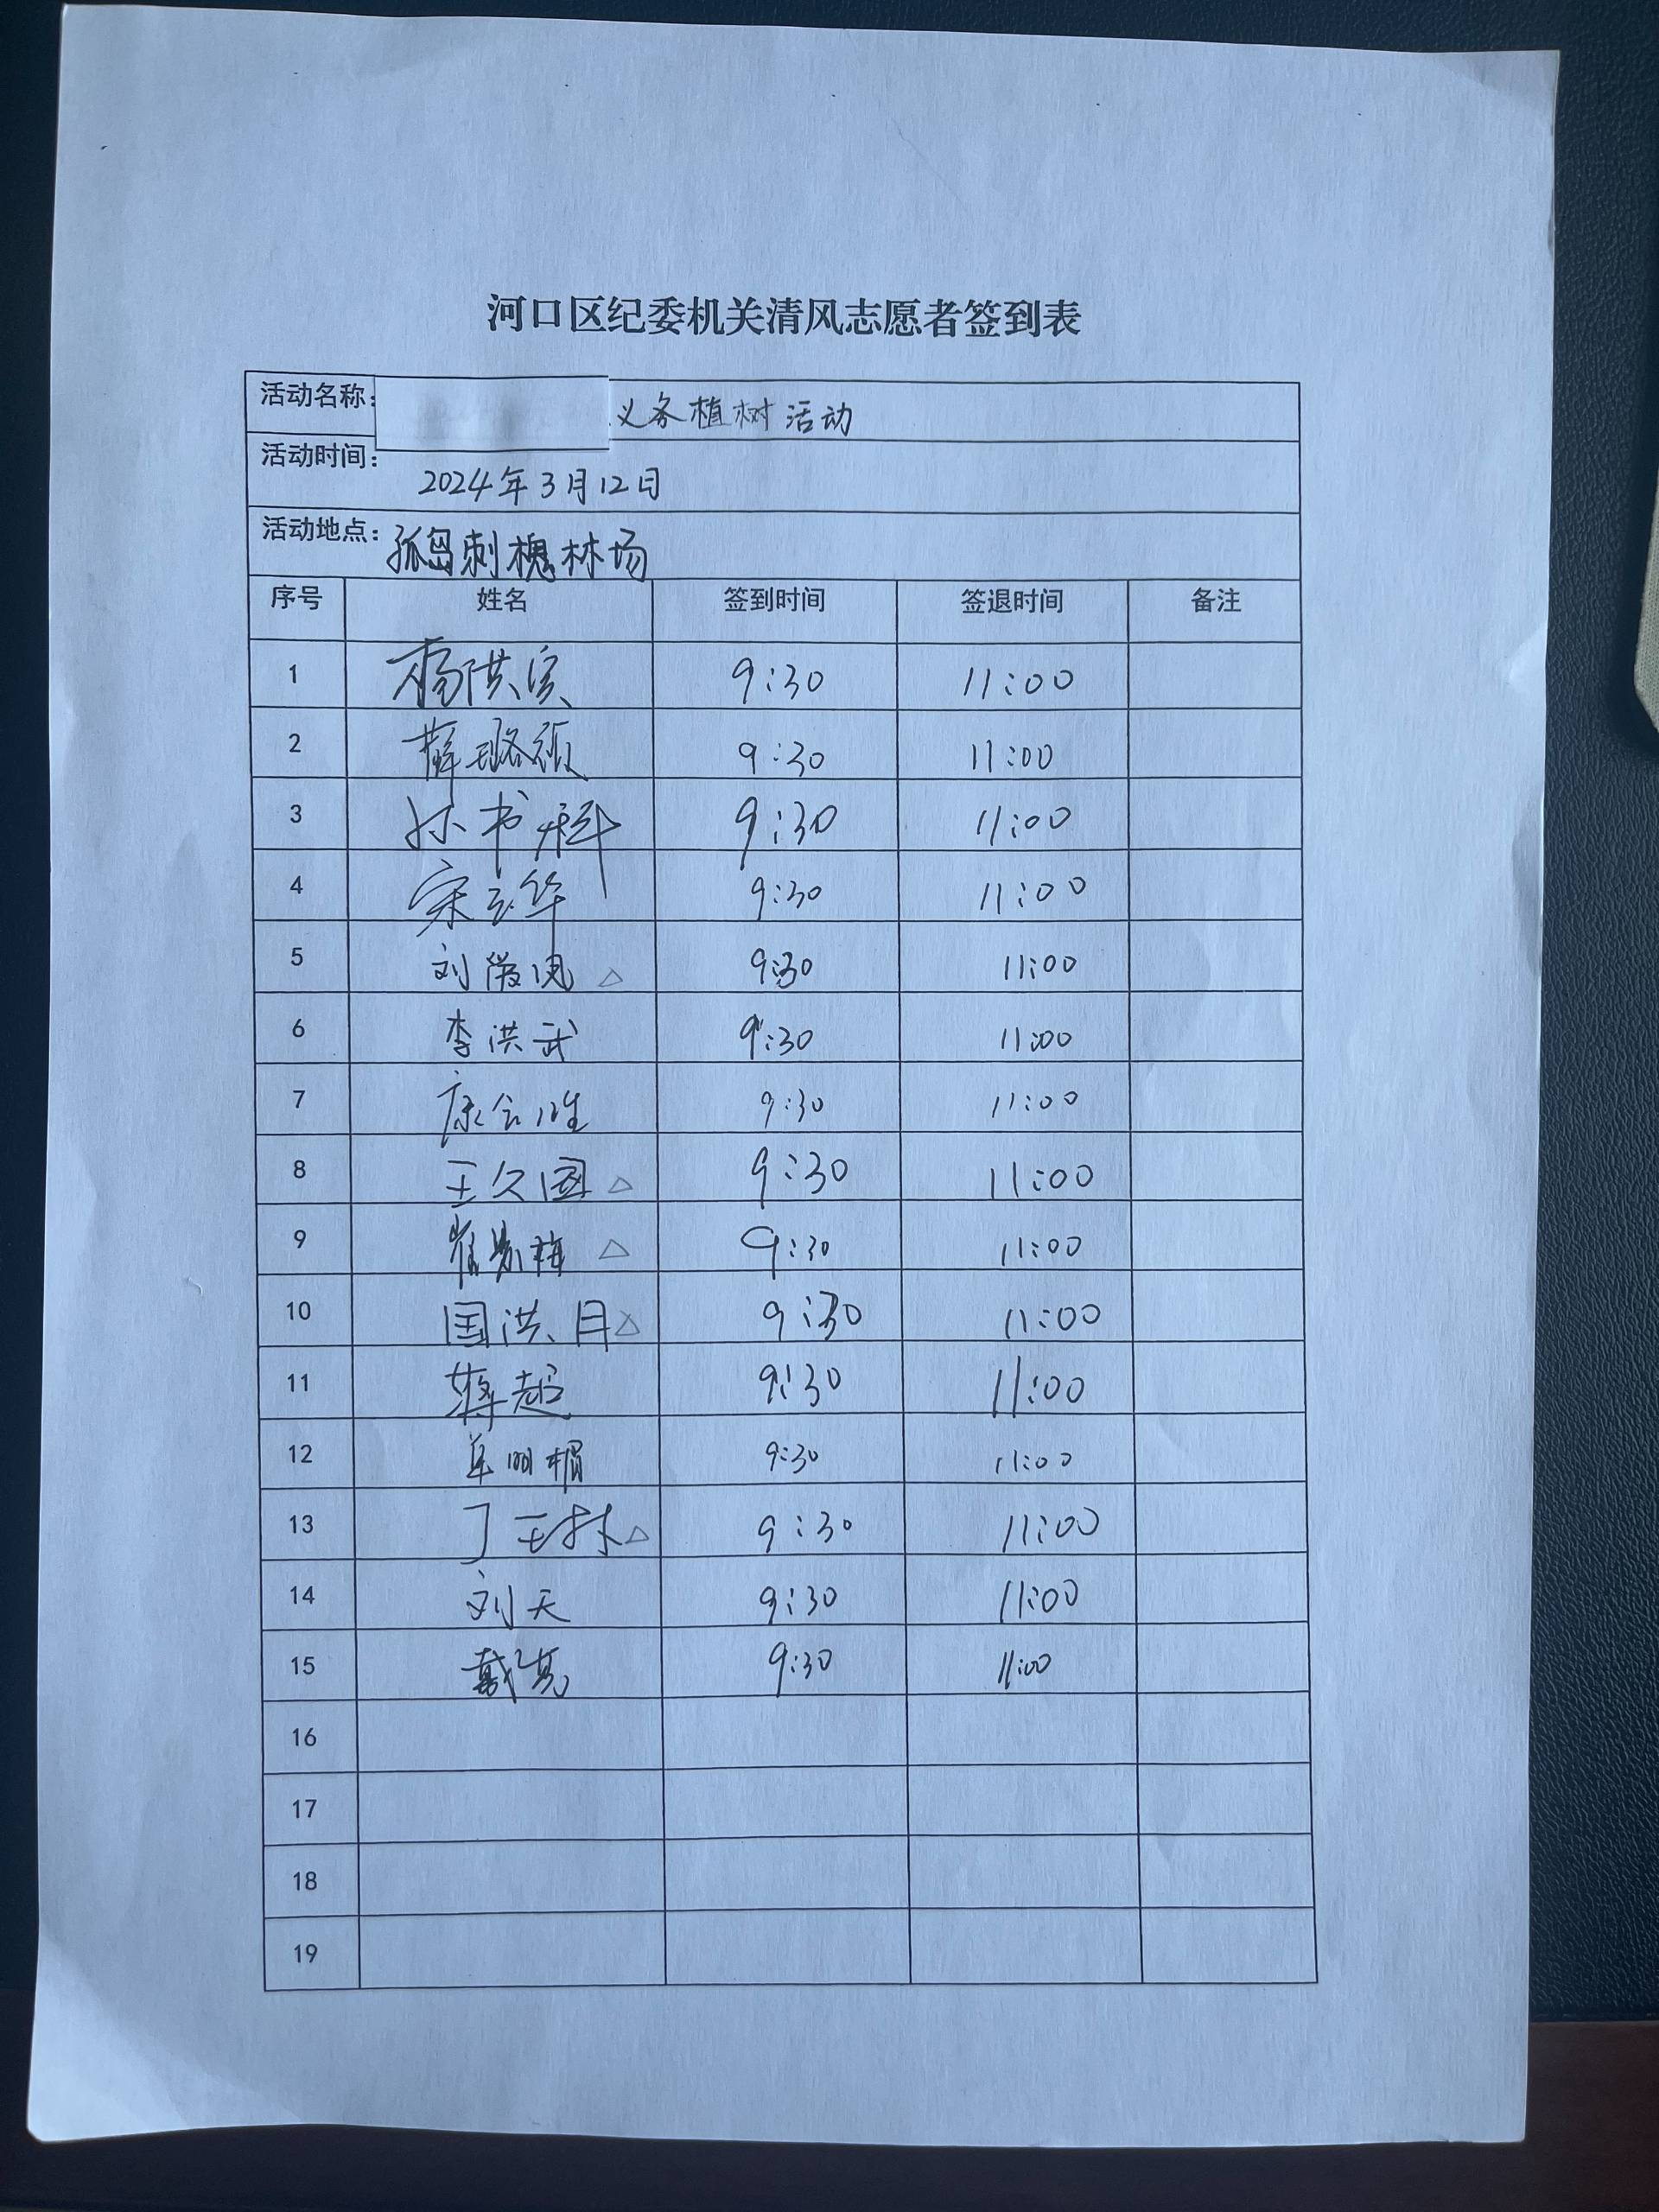 河口区纪委机关清风志愿者签到表
活动名称: 义务植树活动
活动时间: 2024年3月12日
活动地点: 孤岛刺槐林场
序号 姓名 签到时间 签退时间 备注
1 杨洪宾 9:30 11:00
2 薛璐颀 9:30 11:00
3 孙书科 9:30 11:00
4 宋立华 9:30 11:00
5 9:30 11:00
6 李洪武 9:30 11:00
7 康会胜 9:30 11:00
8 王久国△ 9:30 11:00
9 △ 9:30 11:00
10 国洪月△ 9:30 11:00
11 蒋超 9:30 11:00
12 单明楣 9:30 11:00
13 丁玉林△ 9:30 11:00
14 刘天 9:30 11:00
15 戴蒐 9:30 11:00
16
17
18
19